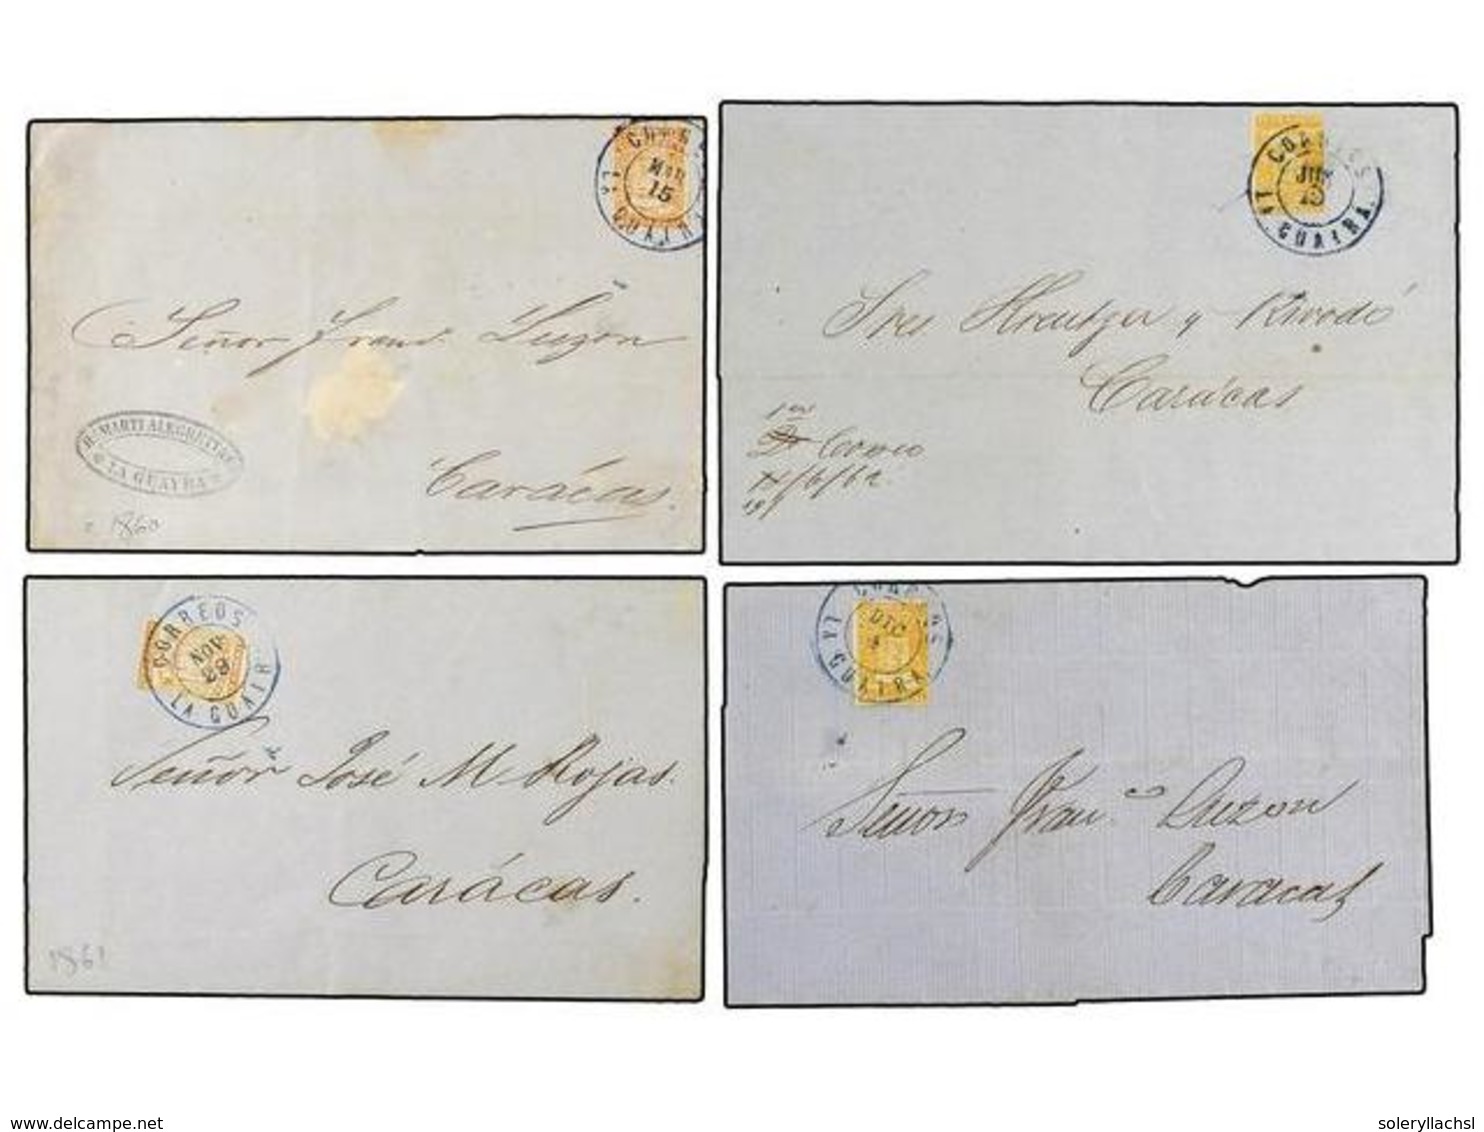 CORREOS
MAR
15
LA GUAIRA
Señor Franco Luzon
Carácas.
H. MARTI ALEGRETT
LA GUAYRA
1860
CORREOS
JUN
LA GUAIRA
Sres Kreutzer y Rivodó
Carácas
1er
Correo
/6/62
19
CORREOS
NOV
28
LA GUAIRA
Señor José M Rojas.
Carácas.
1861
CORREOS
DIC
LA GUAIRA
Señor Franco Luzon
Caracas
www.delcampe.net
soleryllachsl